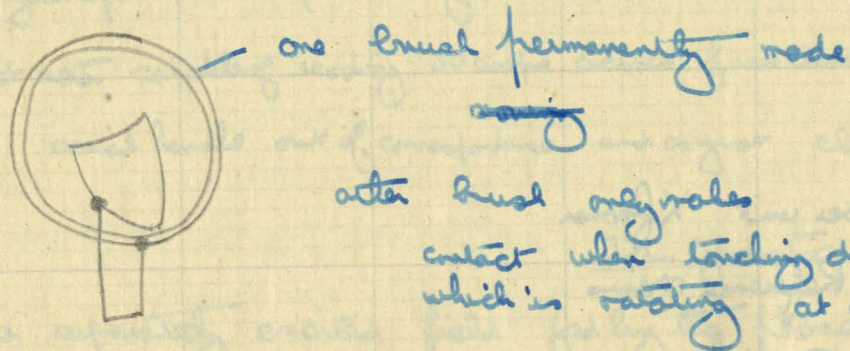 one brush permanently made
moving
other brush only makes
contact when touching d
which is rotating at